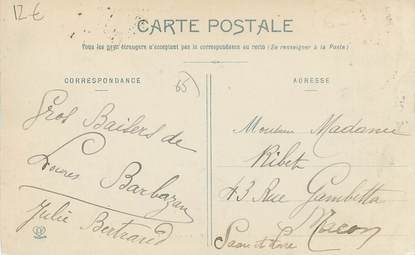 12€
CARTE POSTALE
Tous les pays étrangers n'acceptent pas la correspondance au recto (Se renseigner à la Poste)
CORRESPONDANCE
65
Gros Baisers de
Loures Barbazan
Julie Bertrand
ADRESSE
Madame
Ribet
43 Rue Gambetta
Macon
Saone et Loire